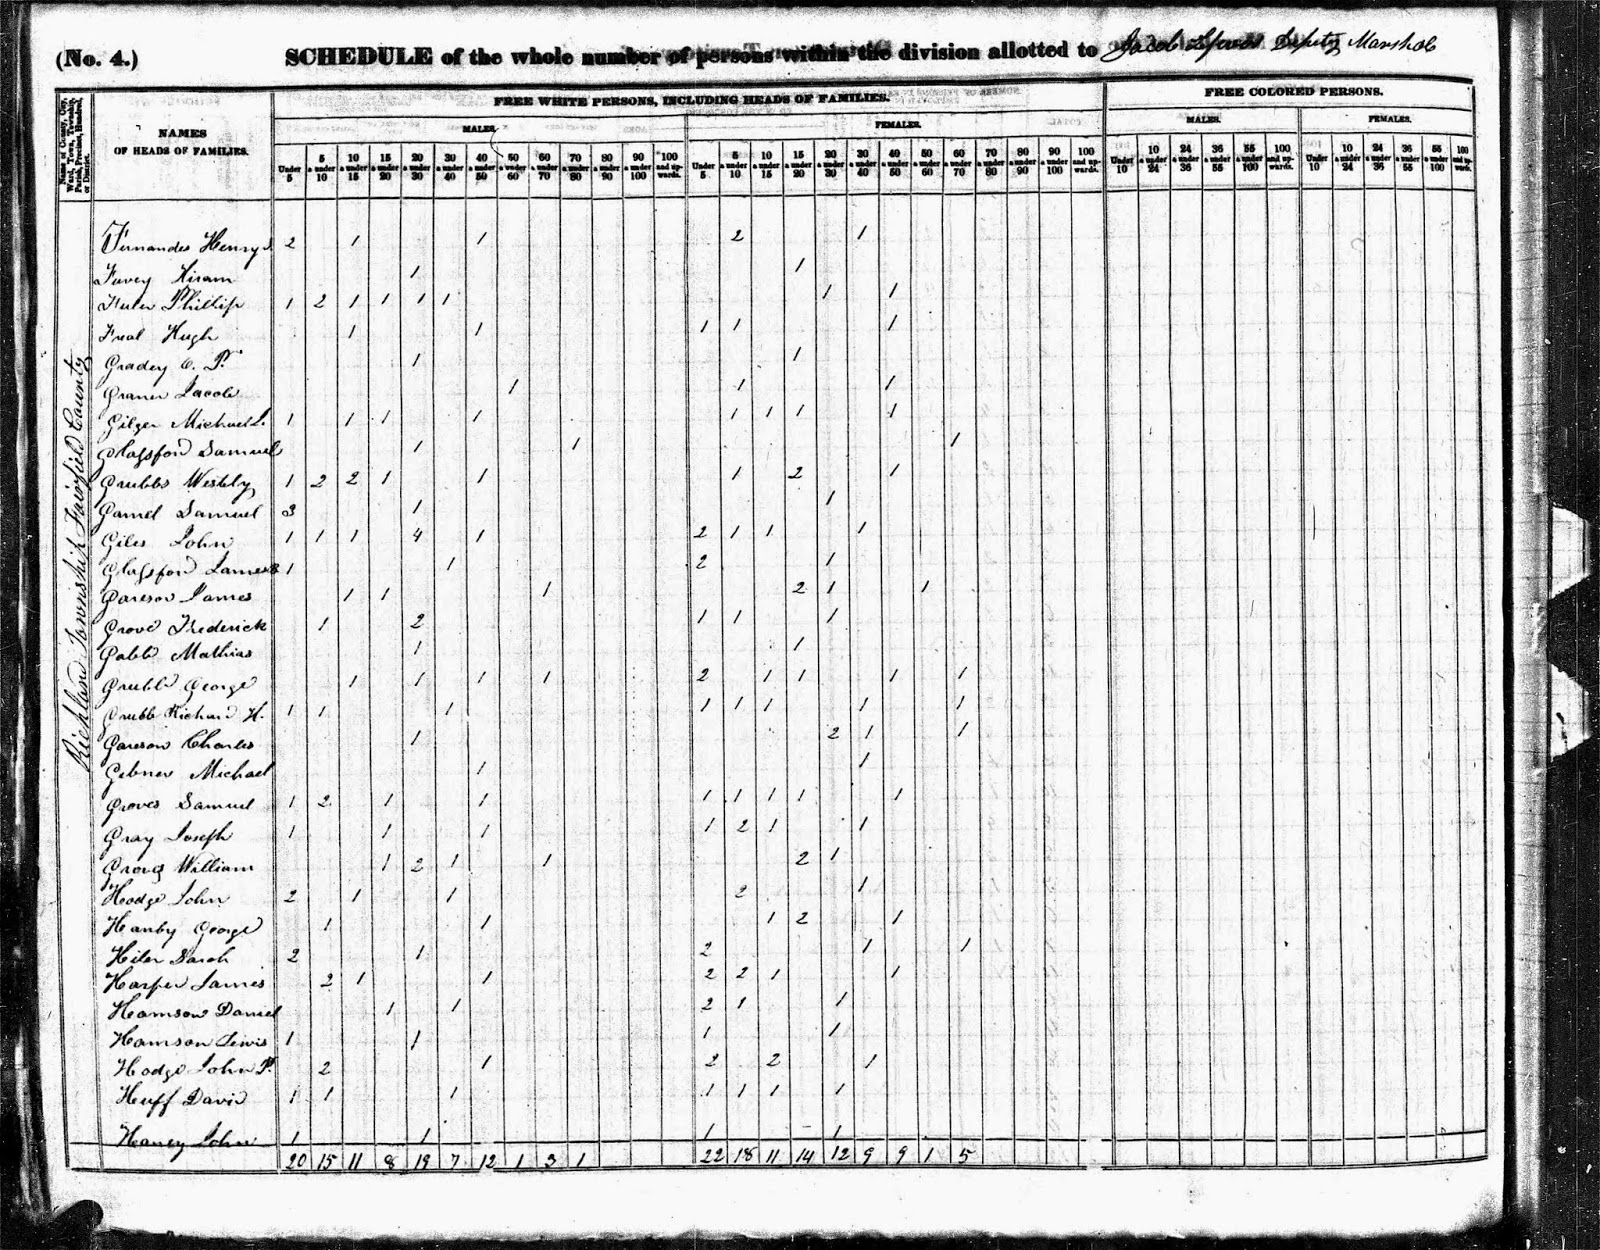 (No. 4.) SCHEDULE of the whole number of persons within the division allotted to Jacob Deputy Marshal
Name of County, City, Ward, Town, Township, Parish, Precinct, Hundred, or District.
NAMES OF HEADS OF FAMILIES.
FREE WHITE PERSONS, INCLUDING HEADS OF FAMILIES. FREE COLORED PERSONS.
MALES. FEMALES. MALES. FEMALES.
Under 5 5 & under 10 10 & under 15 15 & under 20 20 & under 30 30 & under 40 40 & under 50 50 & under 60 60 & under 70 70 & under 80 80 & under 90 90 & under 100 100 and upwards. Under 5 5 & under 10 10 & under 15 15 & under 20 20 & under 30 30 & under 40 40 & under 50 50 & under 60 60 & under 70 70 & under 80 80 & under 90 90 & under 100 100 and upwards. Under 10 10 24 24 36 36 55 55 100 100 and upwards. Under 10 10 24 24 36 36 55 55 100 100 and upwards.
Richland Township Fairfield County
Fernandes Henry 2 1 1 2 1
Hiram 1 1
Phillip 1 2 1 1 1 1 1 1
Hugh 1 1 1 1 1
Gradey C. P. 1 1
Graner Jacob 1 1 1
Gilger Michael L. 1 1 1 1 1 1 1 1
Glassford Samuel 1 1 1
Grubbs Westly 1 2 2 1 1 1 2 1
Gamel Samuel 3 1 1
Giles John 1 1 1 4 1 2 1 1 1
Glassford James 1 1 2 1
Gareson James 1 1 1 2 1 1
Grove Frederick 1 2 1 1 1
Gabb Mathias 1 1
Grubb George 1 1 1 1 2 1 1 1 1
Grubb Richard H. 1 1 1 1 1 1 1 1
Gareson Charles 1 2 1 1
Gebner Michael 1 1
Groves Samuel 1 2 1 1 1 1 1 1 1
Gray Joseph 1 1 1 1 2 1 1
William 1 2 1 1 2 1
Hodge John 2 1 1 2 1
Hanby George 1 1 1 2 1
Hiler Sarah 2 1 2 1 1
Harper James 2 1 1 2 2 1 1
Hamson Daniel 1 1 2 1 1
Hamson Lewis 1 1 1 1
Hodge John P. 2 1 2 2 1
Huff David 1 1 1 1 1 1 1
Haney John 1 1 1 1
20 15 11 8 19 7 12 1 3 1 22 18 11 14 12 9 9 1 5